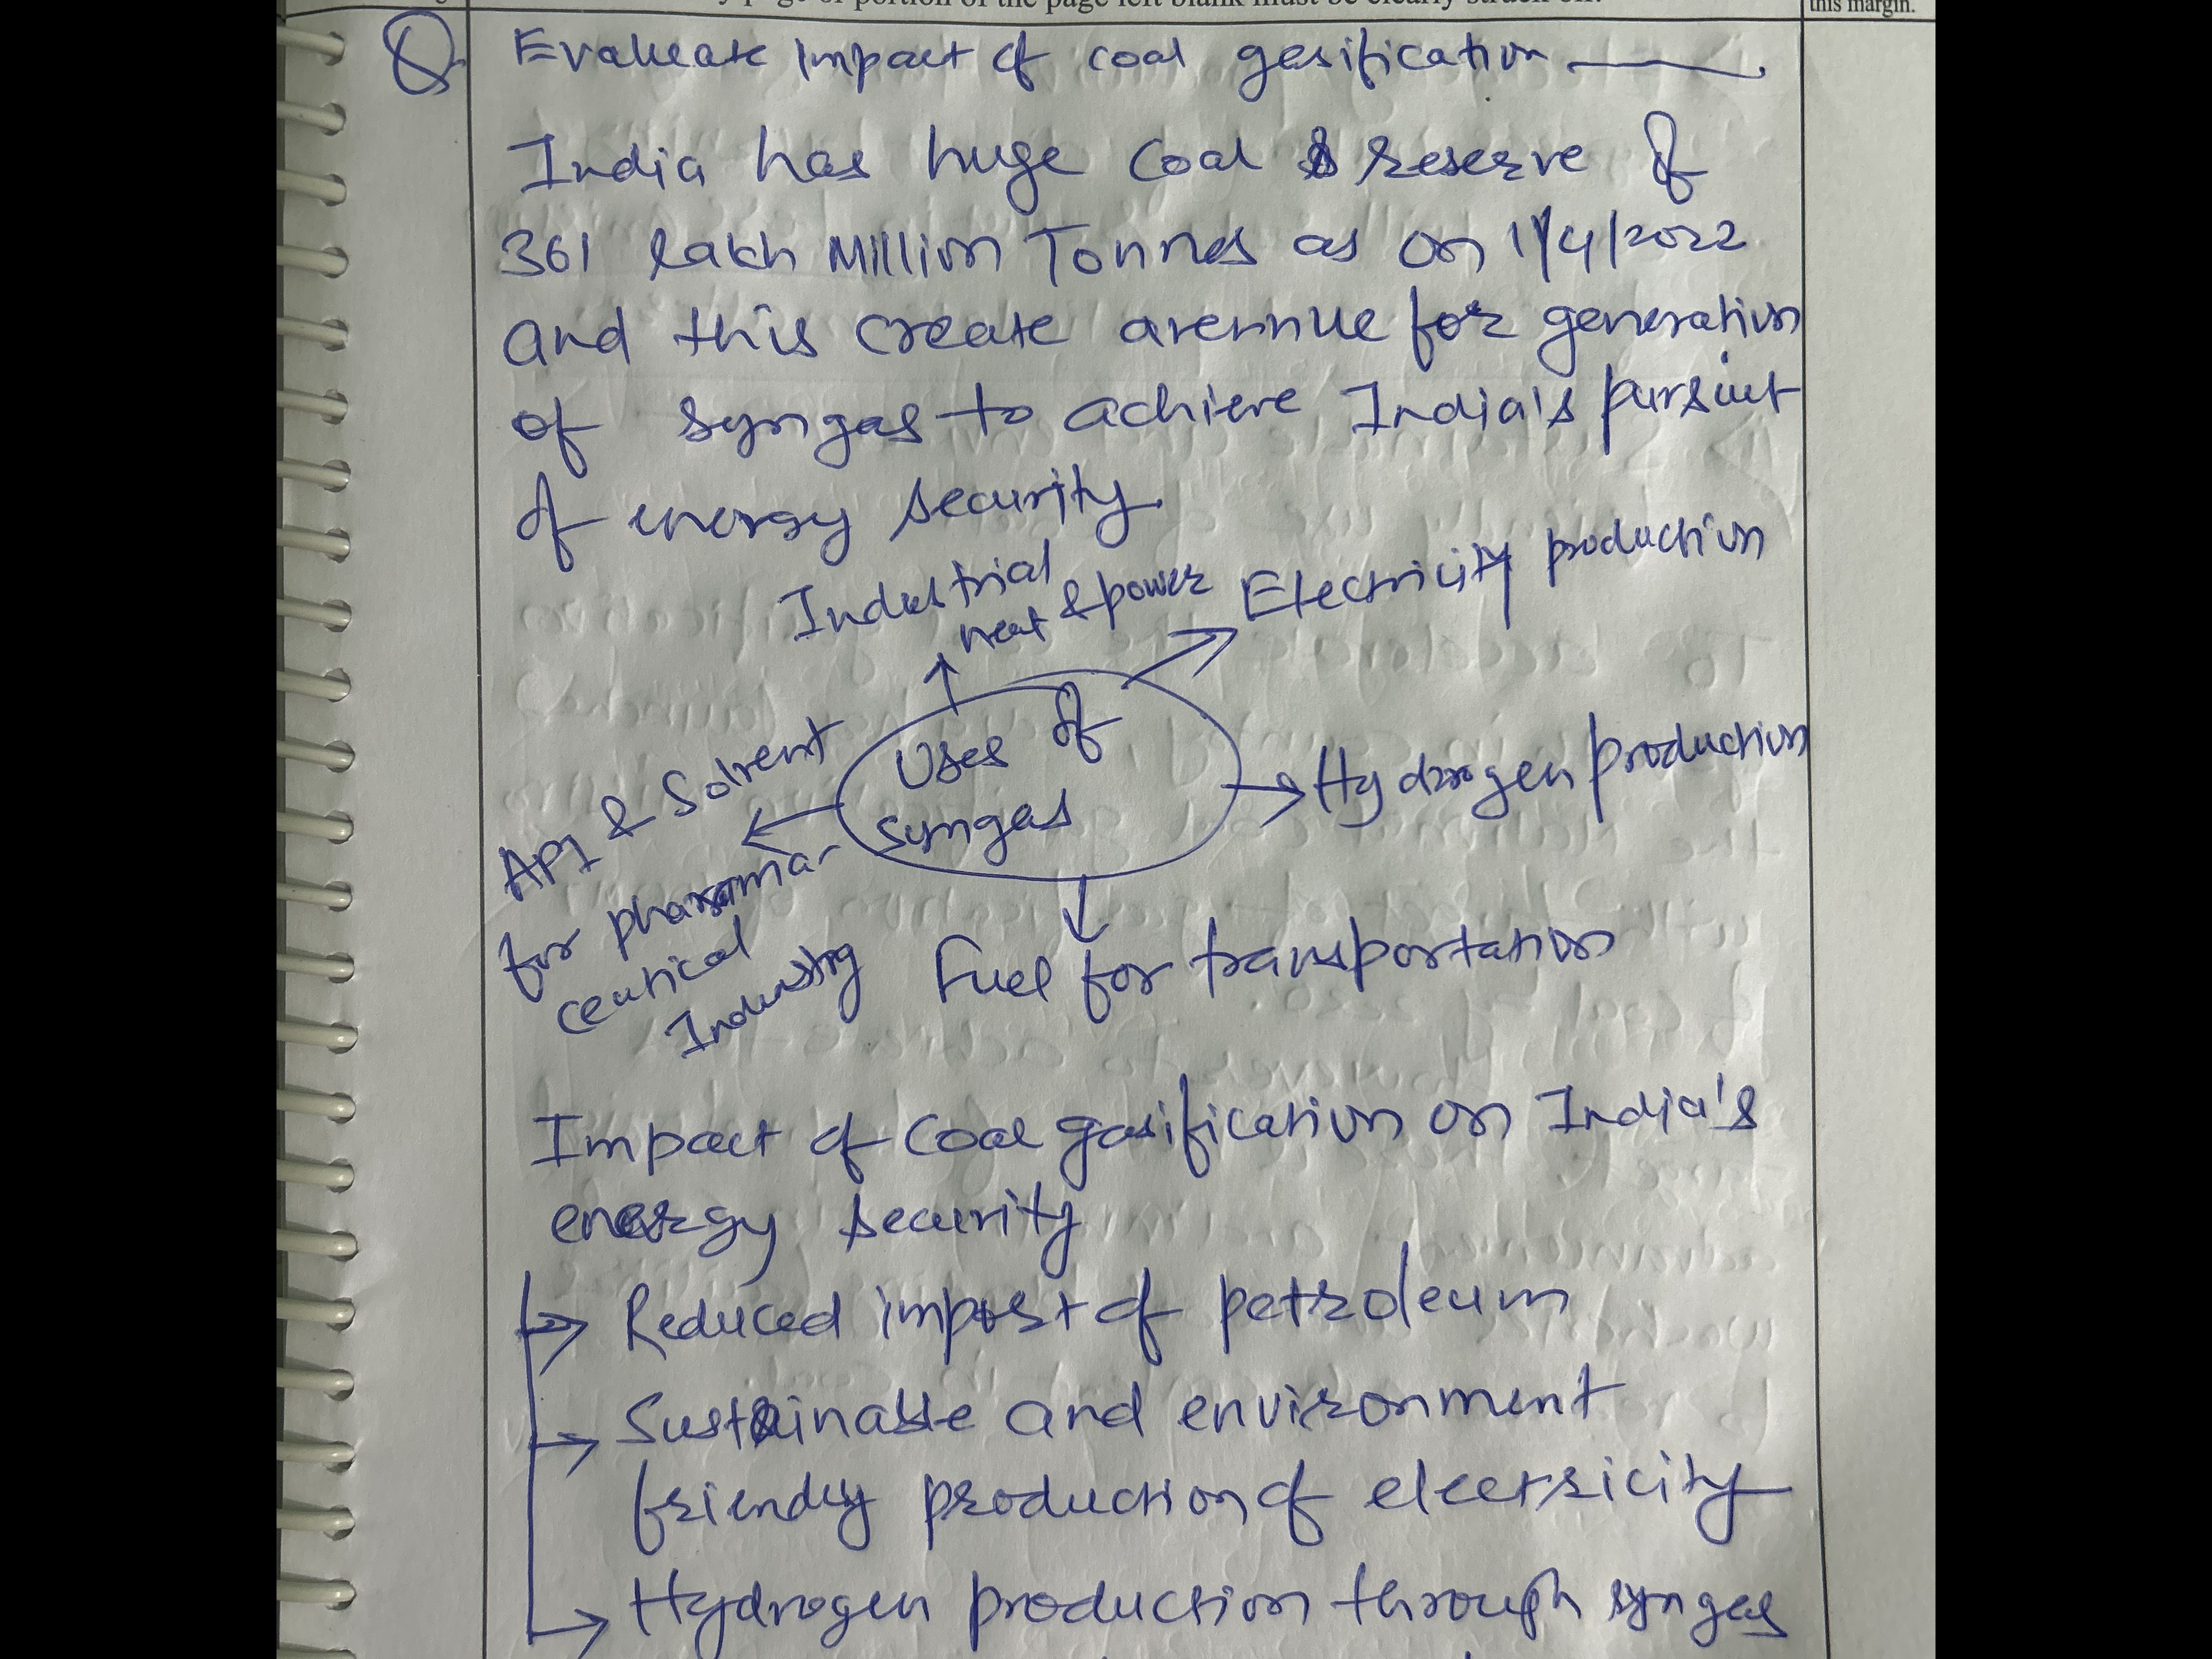 page or portion of the page left blank must be clearly struck off.
this margin.
Q. Evaluate impact of coal gesification
India has huge coal reserve of
361 lakh Million Tonnes as on 1/4/2022
and this create avennue for generation
of syngas to achieve India's pursiut
of energy security.
Industrial
heat & power
Electricity production
Uses of
syngas
Hydrogen production
API & Solvent
for pharmma-
ceutical
Industry
Fuel for transportation
Impact of Coal gasification on India's
energy security
Reduced import of petroleum
Sustainable and environment
friendly production of electricity
Hydrogen production through syngas